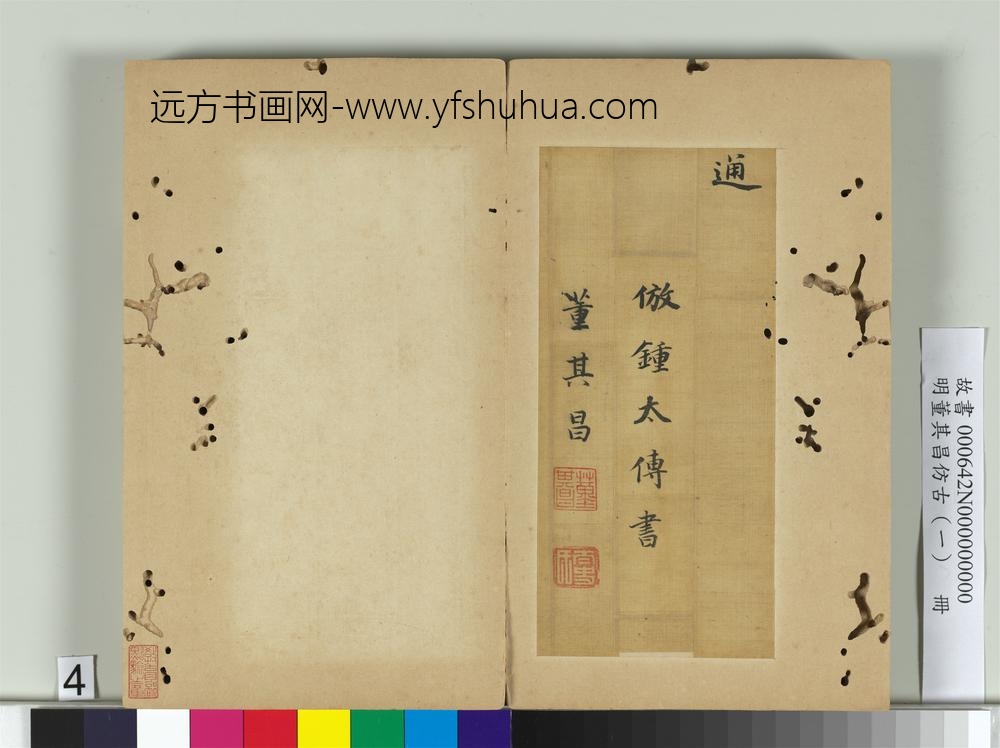 远方书画网-www.yfshuhua.com
通
倣鍾太傅書
董其昌
故書 000642N000000000
明董其昌仿古（一） 冊
4